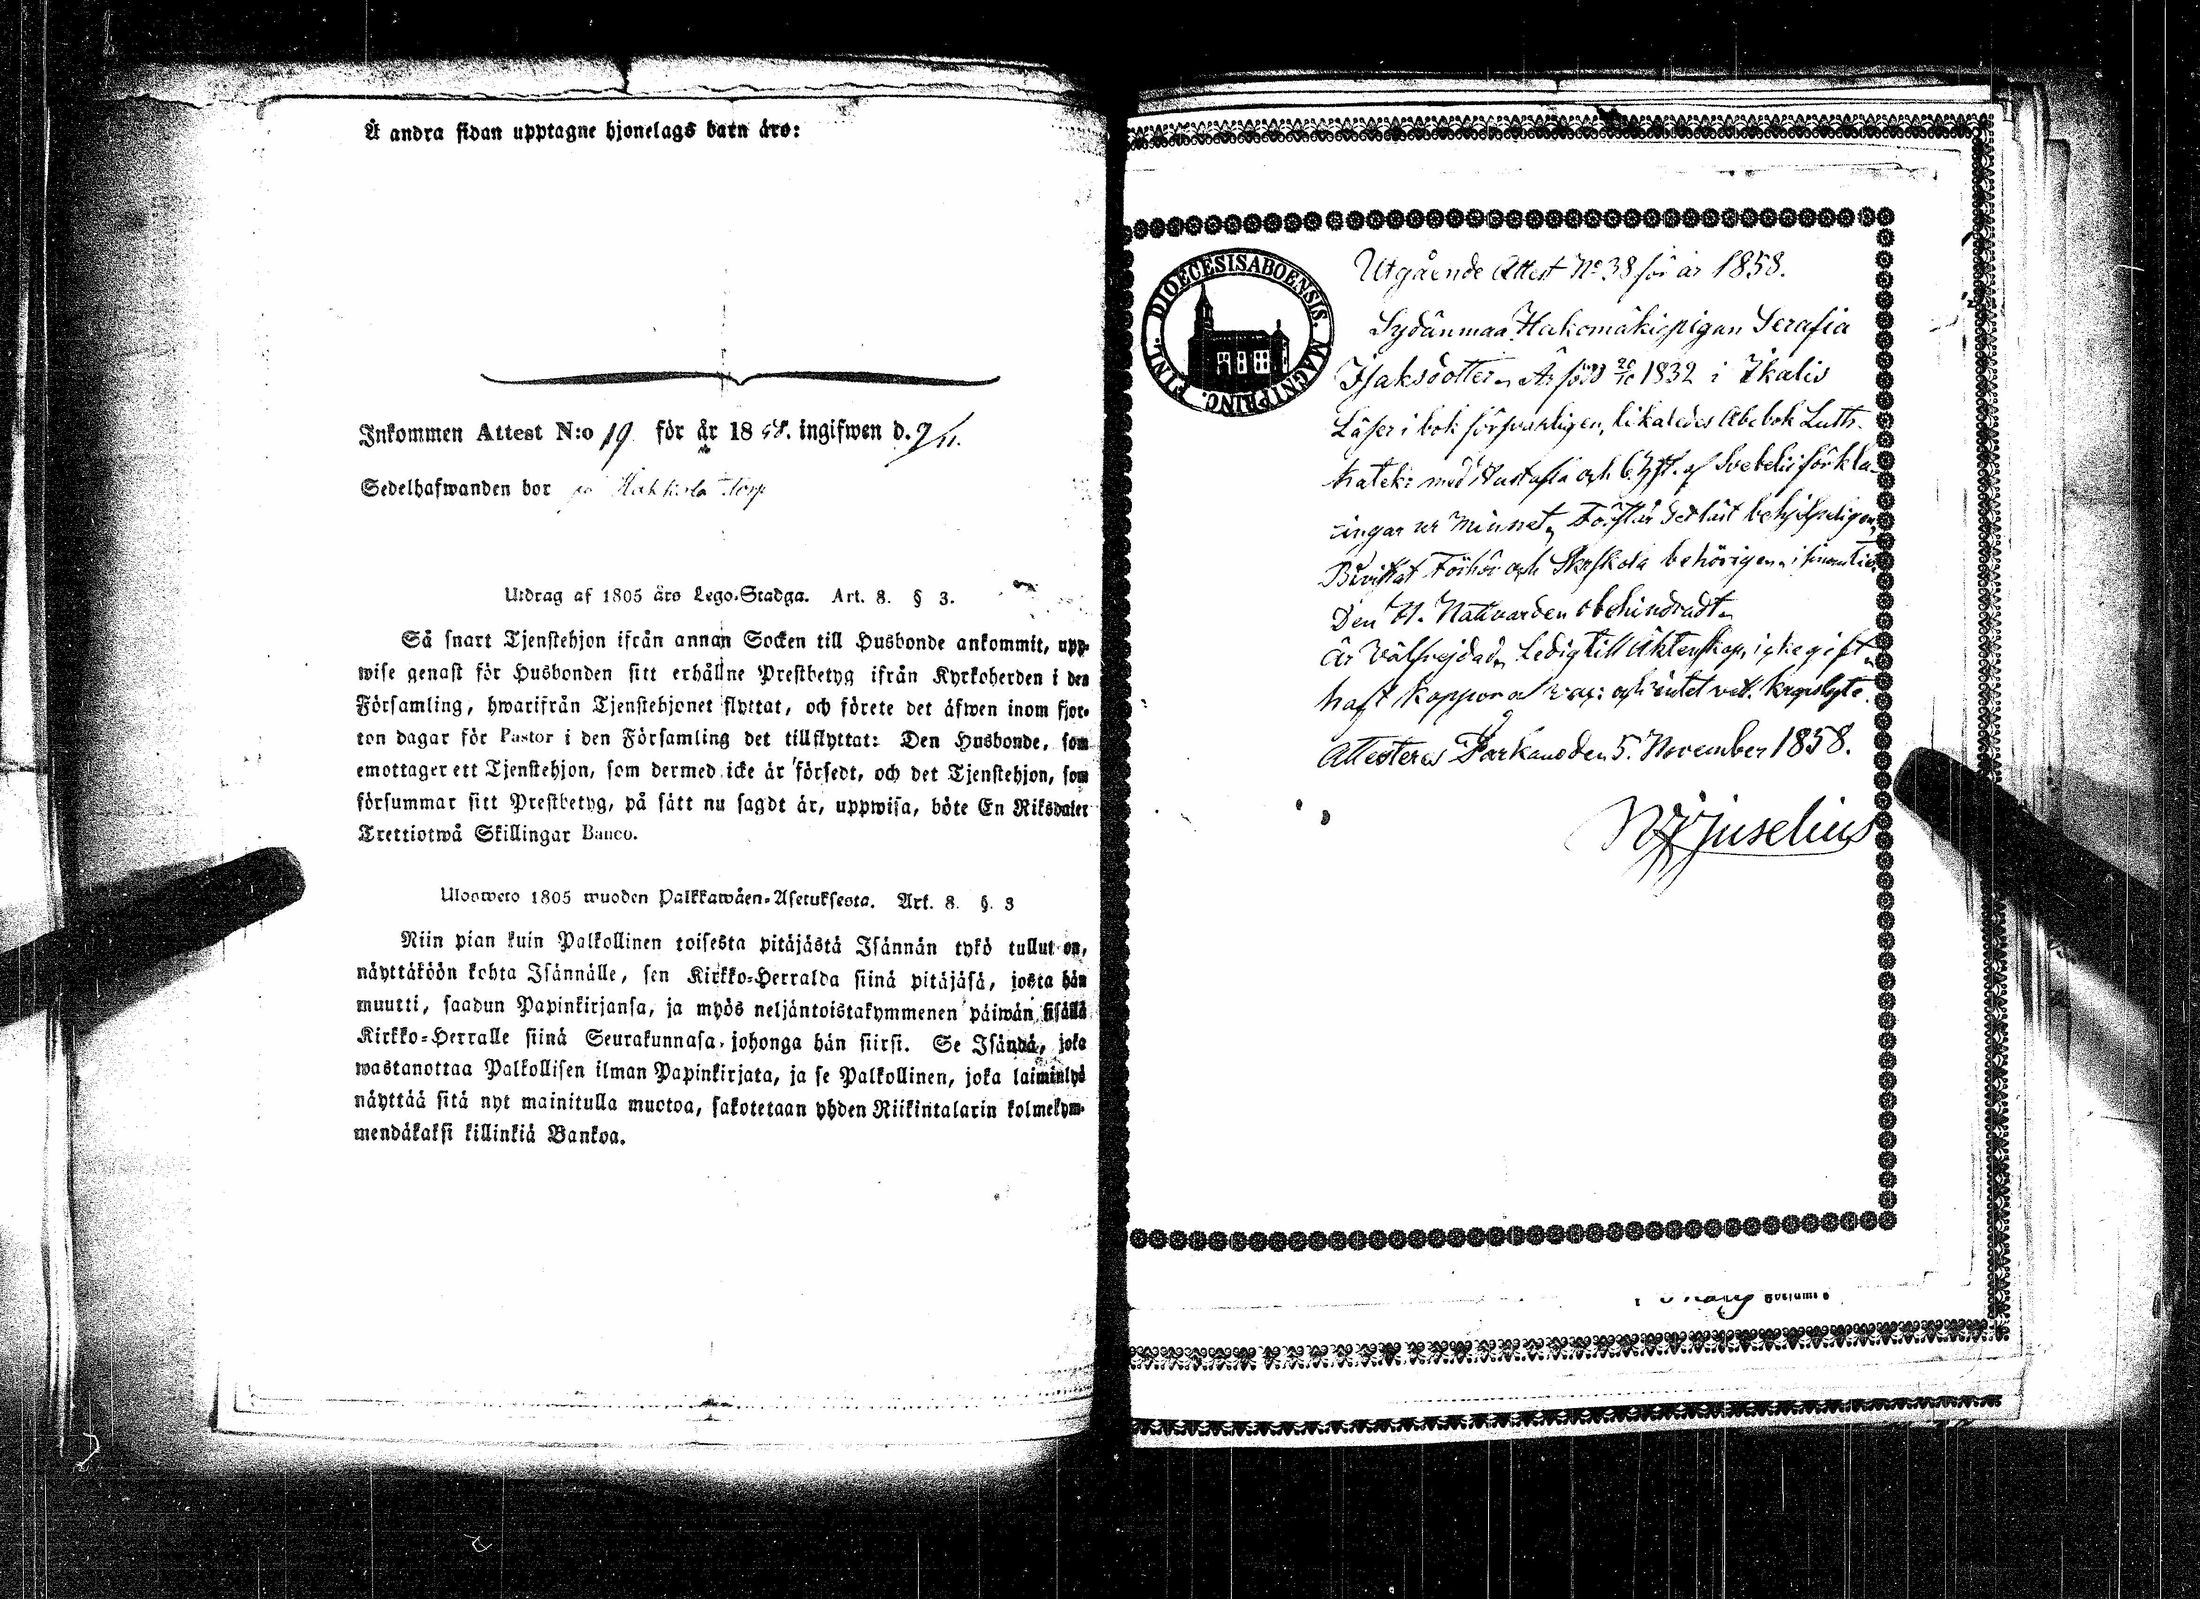 Å andra sidan upptagne hjonelags barn äro:
Inkommen Attest N:o 19 för år 1858. ingifwen d. 9/11.
Sedelhafwanden bor på Torp
Utdrag af 1805 års Lego-Stadga. Art. 8. § 3.
Så snart Tjenstehjon ifrån annan Socken till Husbonde ankommit, upp-
wise genast för Husbonden sitt erhållne Prestbetyg ifrån Kyrkoherden i den
Församling, hwarifrån Tjenstehjonet flyttat, och förete det äfwen inom fjor-
ton dagar för Pastor i den Församling det tillflyttat: Den Husbonde, som
emottager ett Tjenstehjon, som dermed icke är försedt, och det Tjenstehjon, som
försummar sitt Prestbetyg, på sätt nu sagdt är, uppwisa, böte En Riksdaler
Trettiotwå Skillingar Banco.
Ulosweto 1805 wuoden Palkkawäen-Asetuksesta. Art. 8. §. 3
Niin pian kuin Palkollinen toisesta pitäjästä Isännän tykö tullut on,
näyttäköön kohta Isännälle, sen Kirkko-Herralda siinä pitäjäsä, josta hän
muutti, saadun Papinkirjansa, ja myös neljäntoistakymmenen päiwän sisällä
Kirkko-Herralle siinä Seurakunnasa, johonga hän siirsi. Se Isändä, joka
wastanottaa Palkollisen ilman Papinkirjata, ja se Palkollinen, joka laiminlyö
näyttää sitä nyt mainitulla muotoa, sakotetaan yhden Riikintalarin kolmekym-
mendäkaksi killinkiä Bankoa.
DIOECESISABOENSIS. MAGNI PRINC. FINL.
Utgående Attest No 38 för år 1858.
Sydänmaa Hakomäki pigan Serafia
Isaksdotter, Är född 20/10 1832 i Ikalis
Läser i bok försvarligen, likaledes Abcbok Luth.
katek: med Hustafla och 6 af Svebelii förkla-
ringar ur minnet, Förstår det läst behjelpeligen,
Bivistat Förhör och Skrskola behörigen,
Den H. Nattvarden obehindradt,
Är Välfrejdad, Ledig till Äktenskap, icke gift,
haft koppor och intet vet. kropslyte.
Attesteras Parkano den 5. November 1858.
Juselius